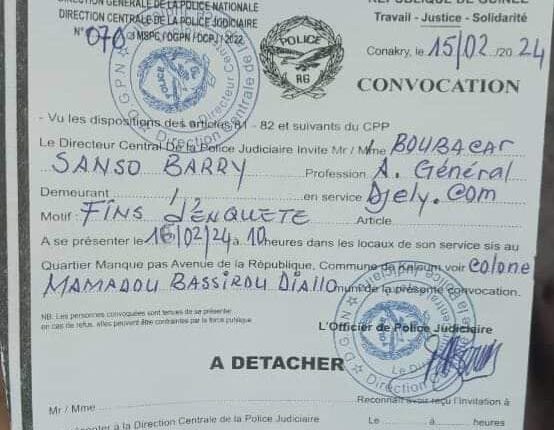 DIRECTION GENERALE DE LA POLICE NATIONALE
DIRECTION CENTRALE DE LA POLICE JUDICIAIRE
N° 070 MSPC/DGPN/DCPJ/2022
REPUBLIQUE DE GUINEE
Travail - Justice - Solidarité
POLICE
RG
Conakry, le 15/02/2024
CONVOCATION
- Vu les dispositions des articles 81 - 82 et suivants du CPP
Le Directeur Central De la Police Judiciaire Invite Mr / Mme BOUBACAR
SANSO BARRY Profession A. Général
Demeurant / en service Djely.com
Motif : FINS d'ENQUETE Article
A se présenter le 16/02/24 à 10 heures dans les locaux de son service sis au
Quartier Manque pas Avenue de la République, Commune de Kaloum voir Colone
MAMADOU BASSIROU DIALLO muni de la présente convocation.
NB: Les personnes convoquées sont tenues de se présenter
en cas de refus, elles peuvent être contraintes par la force publique
L'Officier de Police Judiciaire
A DETACHER
Reconnait avoir reçu l'Invitation à
Mr / Mme
présenter à la Direction Centrale de la Police Judiciaire Le à heures